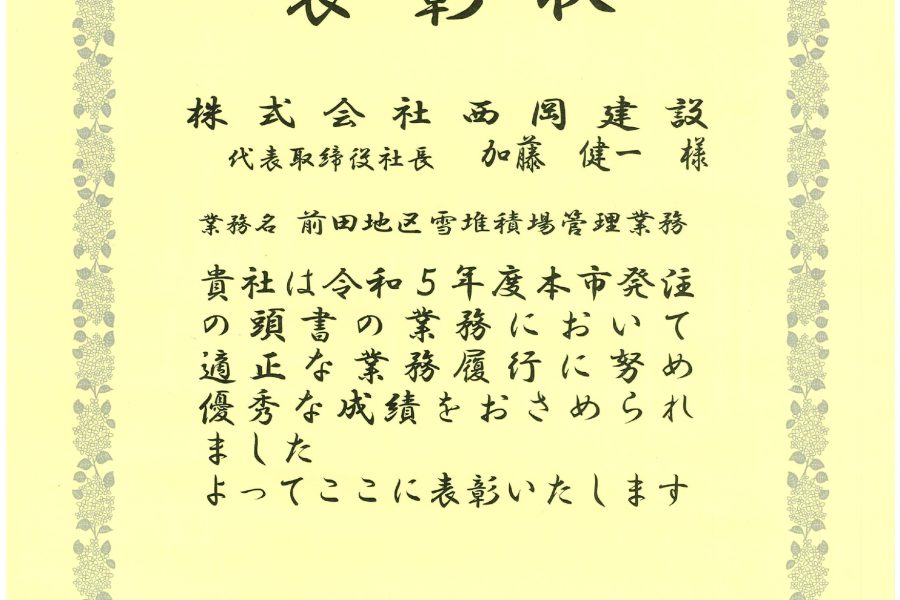 表彰状
株式会社西岡建設
代表取締役社長 加藤 健一 様
業務名 前田地区雪堆積場管理業務
貴社は令和5年度本市発注
の頭書の業務において
適正な業務履行に努め
優秀な成績をおさめられ
ました
よってここに表彰いたします